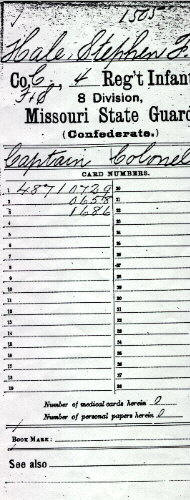 1505
Hale, Stephen F.
Co. C, 4 Reg't Infant
F&S
8 Division,
Missouri State Guard
(Confederate.)
Captain Colonel
CARD NUMBERS.
1 48710729 20
2 0658 21
3 1686 22
4 23
5 24
6 25
7 26
8 27
9 28
10 29
11 30
12 31
13 32
14 33
15 34
16 35
17 36
18 37
19 38
Number of medical cards herein 0
Number of personal papers herein 0
BOOK MARK:
See also